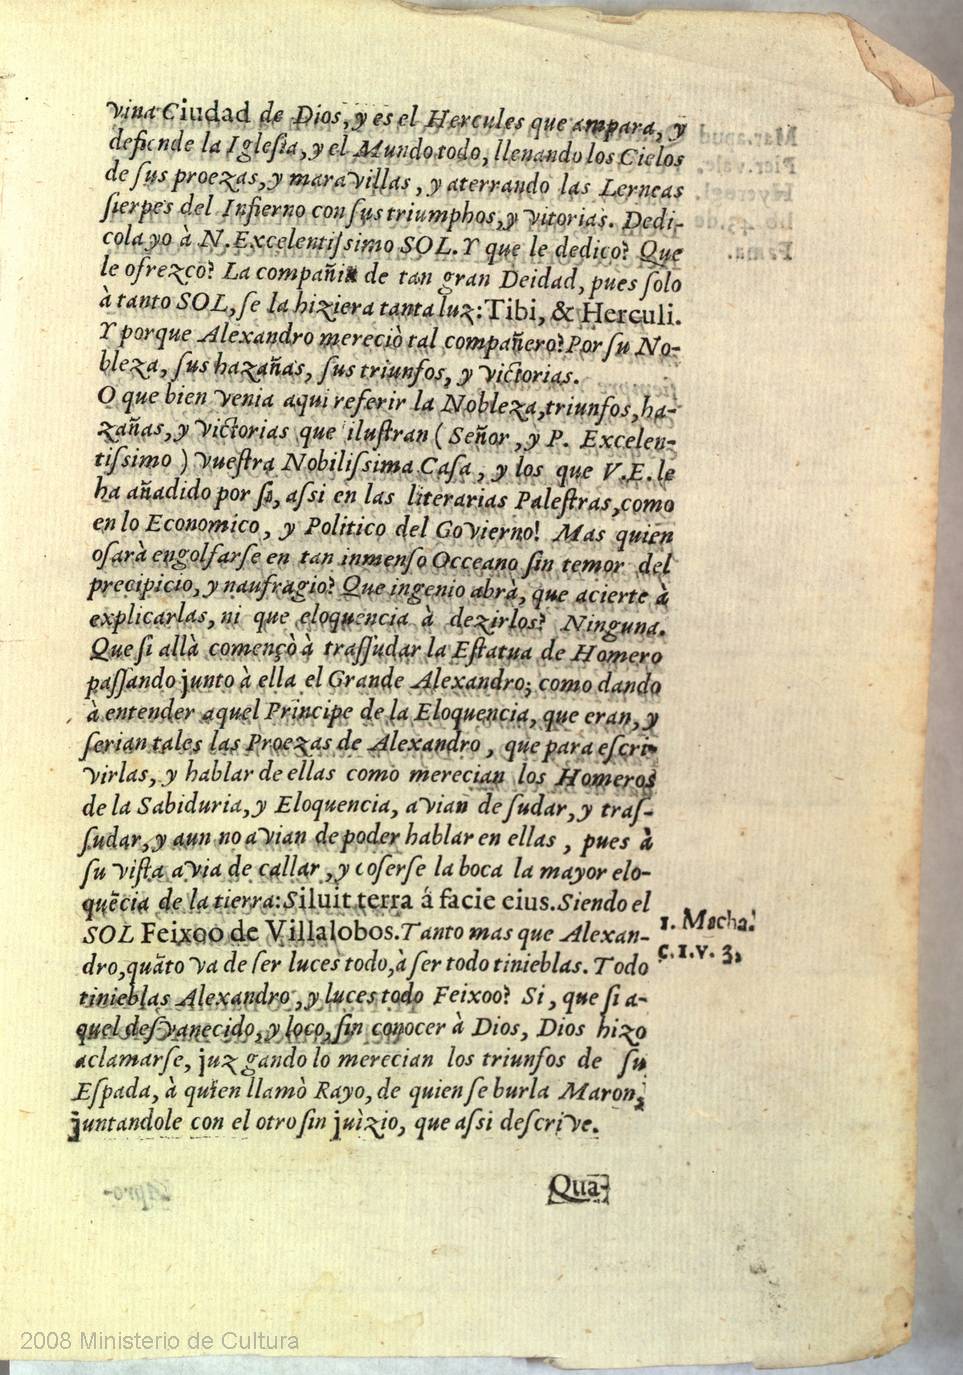 vina Ciudad de Dios, y es el Hercules que ampara, y
defiende la Iglesia, y el Mundo todo, llenando los Cielos
de sus proezas, y maravillas, y aterrando las Lerneas
sierpes del Infierno con sus triumphos, y vitorias. Dedi-
cola yo à N. Excelentissimo SOL. Y que le dedico? Que
le ofrezco? La compañia de tan gran Deidad, pues solo
à tanto SOL, se la hiziera tanta luz: Tibi, & Herculi.
Y porque Alexandro mereciò tal compañero? Por su No-
bleza, sus hazañas, sus triunfos, y victorias.
O que bien venia aqui referir la Nobleza, triunfos, ha-
zañas, y victorias que ilustran ( Señor, y P. Excelen-
tissimo ) vuestra Nobilissima Casa, y los que V.E. le
ha añadido por si, assi en las literarias Palestras, como
en lo Economico, y Politico del Govierno! Mas quien
osarà engolfarse en tan inmenso Occeano sin temor del
precipicio, y naufragio? Que ingenio abrà, que acierte à
explicarlas, ni que eloquencia à dezirlos? Ninguna.
Que si allà començò à trassudar la Estatua de Homero
passando junto à ella el Grande Alexandro; como dando
à entender aquel Principe de la Eloquencia, que eran, y
serian tales las Proezas de Alexandro, que para escri-
virlas, y hablar de ellas como merecian los Homeros
de la Sabiduria, y Eloquencia, avian de sudar, y tras-
sudar, y aun no avian de poder hablar en ellas, pues à
su vista avia de callar, y coserse la boca la mayor elo-
quẽcia de la tierra: Siluit terra á facie eius. Siendo el
1. Macha.
SOL Feixoo de Villalobos. Tanto mas que Alexan-
c. 1. v. 3.
dro, quãto va de ser luces todo, à ser todo tinieblas. Todo
tinieblas Alexandro, y luces todo Feixoo? Si, que si a-
quel desvanecido, y loco, sin conocer à Dios, Dios hizo
aclamarse, juzgando lo merecian los triunfos de su
Espada, à quien llamò Rayo, de quien se burla Maron,
juntandole con el otro sin juizio, que assi descrive.
Qua-
2008 Ministerio de Cultura